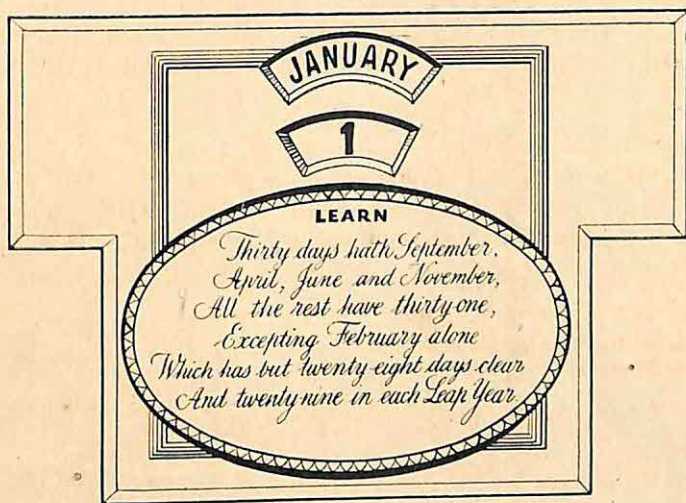 JANUARY
1
LEARN
Thirty days hath September,
April, June and November,
All the rest have thirty one,
Excepting February alone
Which has but twenty eight days clear
And twenty nine in each Leap Year.